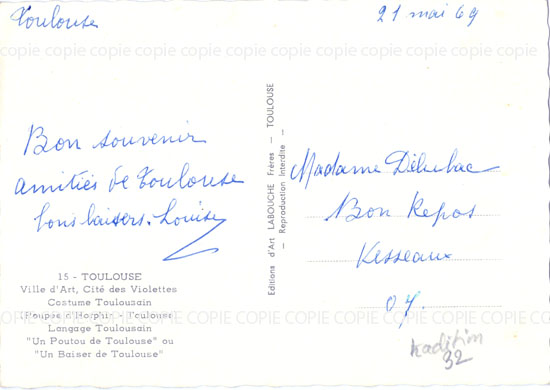 Toulouse
21 mai 69
copie copie copie copie copie copie copie copie copie copie
Bon souvenir
amitiés de Toulouse
bons baisers. Louise
15 - TOULOUSE
Ville d'Art, Cité des Violettes
Costume Toulousain
(Poupée d'Horphir - Toulouse)
Langage Toulousain
"Un Poutou de Toulouse" ou
"Un Baiser de Toulouse"
Editions d'Art LABOUCHE Frères — TOULOUSE
— Reproduction Interdite —
Madame Délubac
Bon Repos
Vesseaux
07.
tradition
32